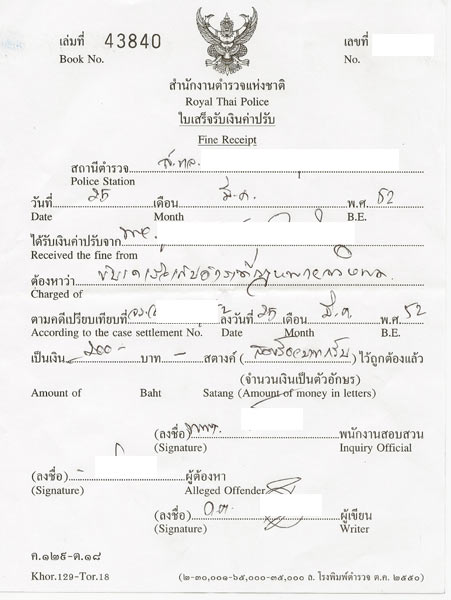 เล่มที่ 43840 เลขที่
Book No. No.
สำนักงานตำรวจแห่งชาติ
Royal Thai Police
ใบเสร็จรับเงินค่าปรับ
Fine Receipt
สถานีตำรวจ
Police Station
วันที่ 25 เดือน มี.ค. พ.ศ. 52
Date Month B.E.
ได้รับเงินค่าปรับจาก
Received the fine from
ต้องหาว่า
Charged of
ตามคดีเปรียบเทียบที่ ลงวันที่ 25 เดือน มี.ค. พ.ศ. 52
According to the case settlement No. Date Month B.E.
เป็นเงิน 200 - บาท - สตางค์ (สองร้อยบาท) ไว้ถูกต้องแล้ว
(จำนวนเงินเป็นตัวอักษร)
Amount of Baht Satang (Amount of money in letters)
(ลงชื่อ) พนักงานสอบสวน
(Signature) Inquiry Official
(ลงชื่อ) ผู้ต้องหา
(Signature) Alleged Offender
(ลงชื่อ) ผู้เขียน
(Signature) Writer
ค.๑๒๙-ต.๑๘
Khor.129-Tor.18 (๒-๓๐,๐๐๑-๖๕,๐๐๐-๓๕,๐๐๐ ล. โรงพิมพ์ตำรวจ ต.ค. ๒๕๕๐)